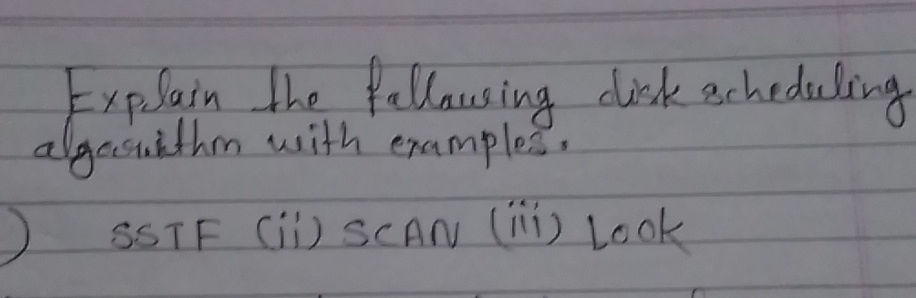 Explain the following disk scheduling
algorithm with examples.
) SSTF (ii) SCAN (iii) Look